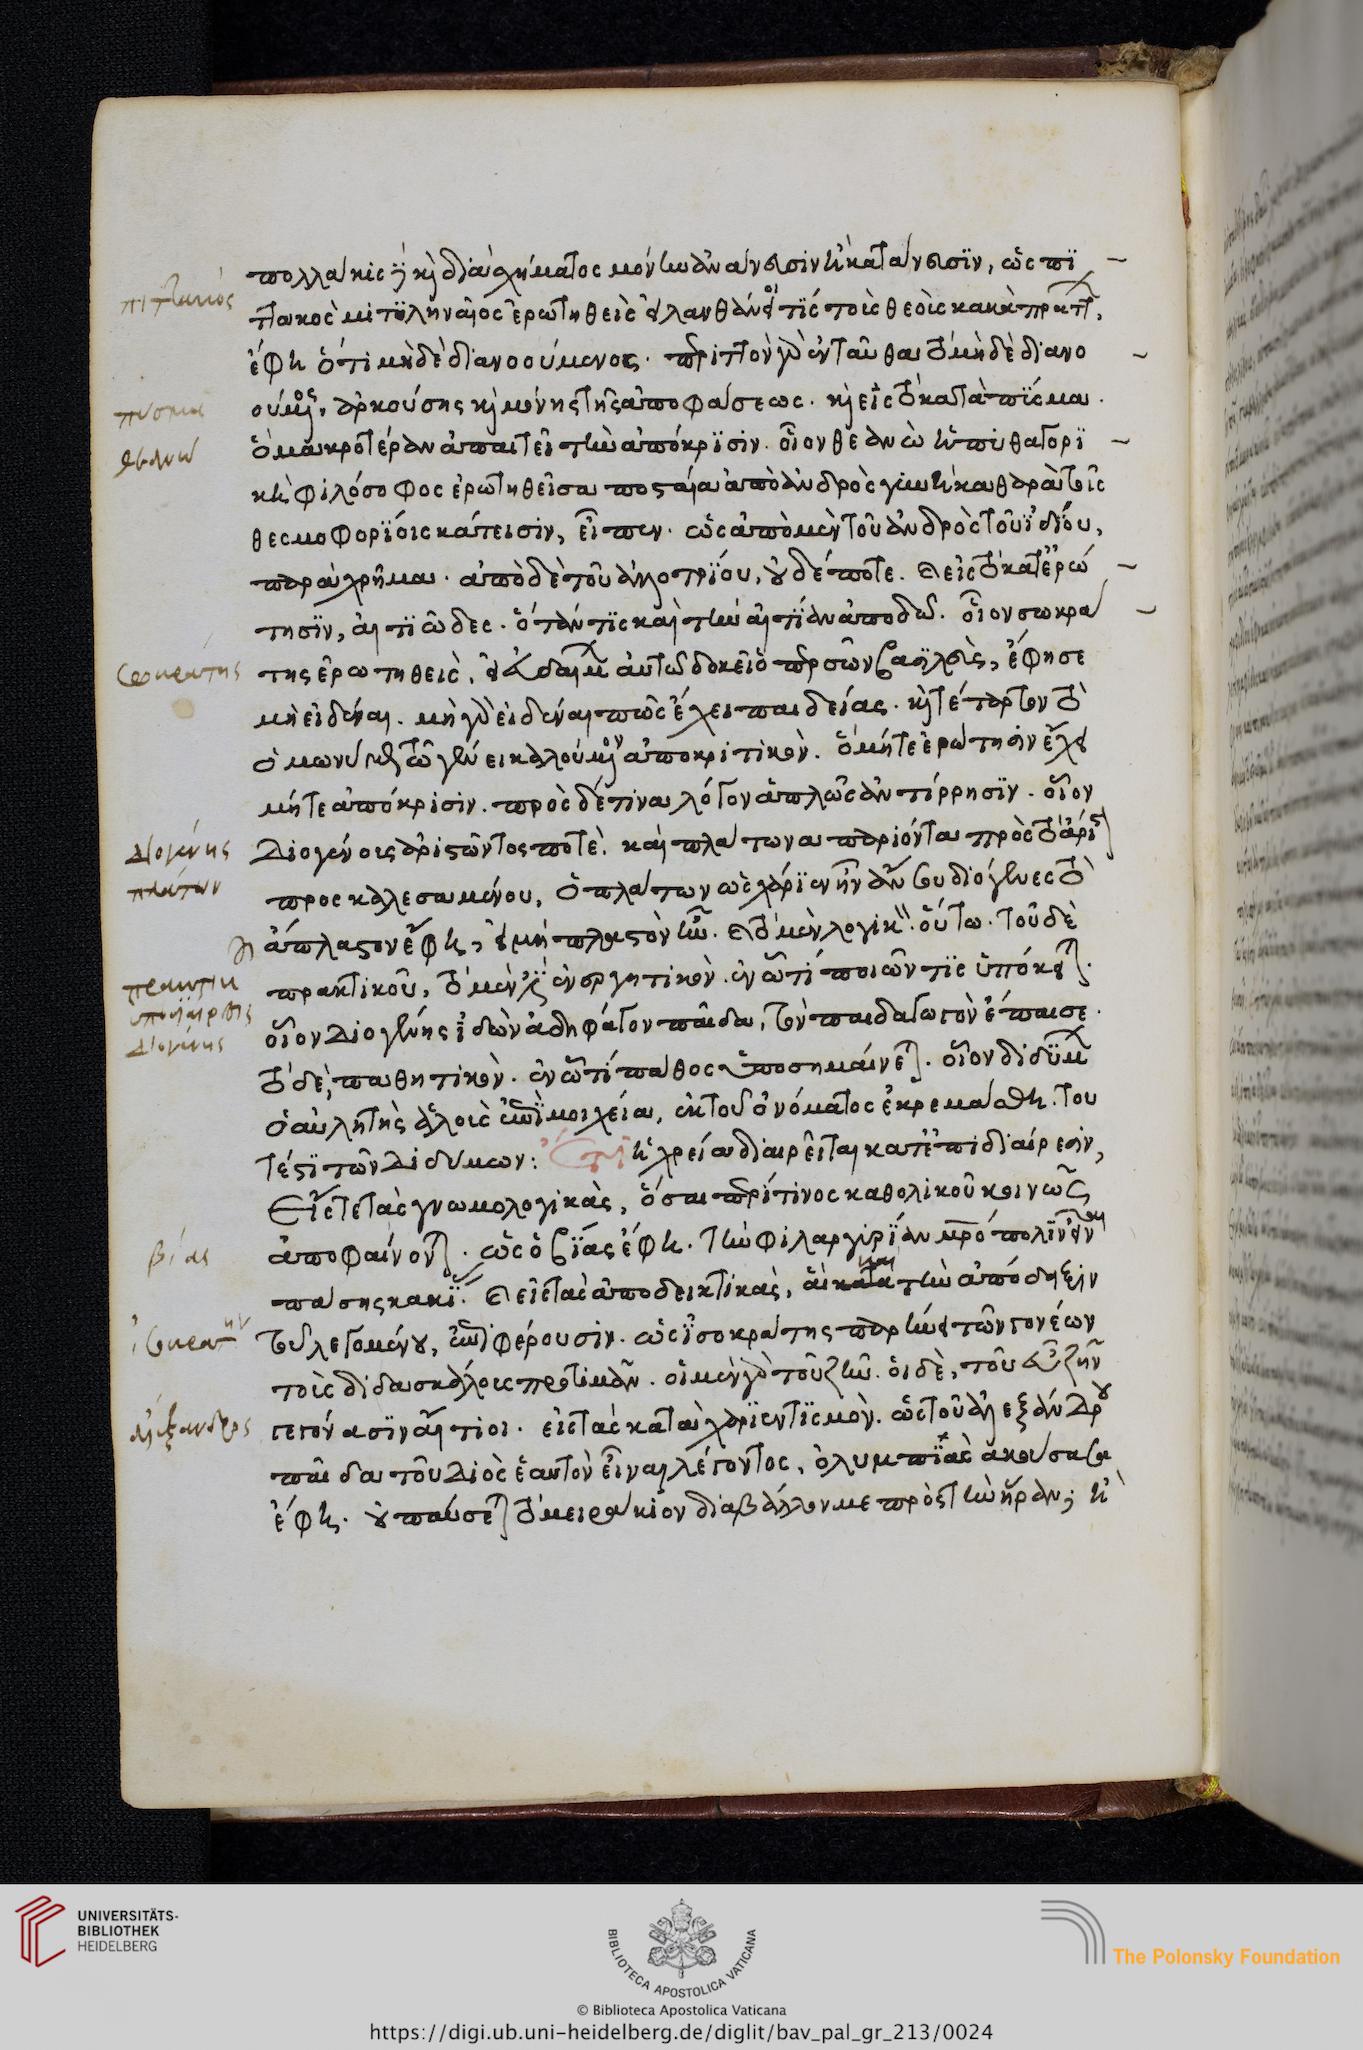 πολλάκις δὲ καὶ διὰ σχήματος μόνην ἀνάνευσιν ἢ κατάνευσϊν, ὡς πϊ
Πιττακός
ττακος μιτυληναῖος ἐρωτηθεὶς εἰ λανθάνει τίς τοὺς θεοὺς κακὰ πράττ,
ἔφη ὅτι μηδὲ διανοούμενος. περιττὸν γὰρ ἐνταῦθα τὸ μηδὲ διανο
πύσμα
ούμενος, ἀρκούσης καὶ μόνης τῆς ἀποφάσεως. καὶ εἰς τὸ κατὰ πύσμα.
θεανὼ
ὃ μακροτέραν ἀπαιτεῖ τὴν ἀπόκρϊσϊν. οἷον θεανὼ ἡ πυθαγορϊ
κὴ φιλόσοφος ἐρωτηθεῖσα ποσταία ἀπὸ ἀνδρὸς γυνὴ καθαρὰ τοῖς
θεσμοφορϊοις κάτεισϊν, εἶπεν. ὡς ἀπὸ μὲν τοῦ ἀνδρὸς τοῦ ἰδίου,
παραχρῆμα. ἀπὸ δὲ τοῦ ἀλλοτρϊου, οὐδέποτε. καὶ εἰς τὸ κατ' ἐρώ
τησϊν, αἰτιῶδες. ὅταν τις καὶ τὴν αἰτίαν ἀποδῶ. οἷον σωκρά
Σωκράτης
της ἐρωτηθεὶς, εἰ εὐδαίμ αὐτῶ δοκεῖ ὁ περσῶν βασιλεὺς, ἔφησε
μὴ εἰδέναι. μὴ γὰρ εἰδέναι πῶς ἔχει παιδείας. καὶ τέταρτον τὸ
ὁμωνύμως τῶ γένει καλούμενον ἀποκριτικὸν. ὃ μήτε ἐρώτησιν ἔχει
μήτε ἀπόκρισιν. πρὸς δέ τινα λόγον ἁπλῶς ἀντίρρησϊν. οἷον
Διογένης
Διογένους ἀριστῶντος ποτὲ. καὶ πλάτωνα παριόντα πρὸς τὸ ἄρι
πλάτων
προσκαλεσαμένου, ὁ πλάτων ὡς χάριεν ἦν ἂν σου διόγενες τὸ
ἄπλαστον ἔφη, εἰ μὴ πλαστὸν ἦν. καὶ τὸ μὲν λογικ οὕτω. τοῦ δὲ
πρακτικ
πρακτικοῦ, τὸ μὲν ἐνεργητικὸν. ἐν ᾧ τί ποιῶν τις ὑπόκει.
ὑποδιαίρεσις
οἷον Διογένης ἰδὼν ἀδηφάγον παῖδα, τὸν παιδαγωγὸν ἔπαισε.
Διογένης
τὸ δὲ, παθητικὸν. ἐν ᾧ τί πάθος ὑποσημαίνε. οἷον διδύμ
ὁ αὐλητὴς ἁλοὺς ἐπὶ μοιχεία, ἐκ τοῦ ὀνόματος ἐκρεμάσθη. του
τέστι τῶν Διδύμων: Ἔτι ἡ χρεία διαιρεῖται κατ' ἐπιδιαίρεσιν,
Εἴς τε τὰς γνωμολογικὰς, ὅσαι περί τινος καθολικοῦ κοινῶς
βίας
ἀποφαίνον. ὡς ὁ βϊας ἔφη. τὴν φιλαργυρϊαν μητρόπολϊν εἶναι
πάσης κακί. καὶ εἰς τὰς ἀποδεικτικὰς, αἳ καὶ τὴν ἀπόδειξιν
Ἰσοκράτην
τοῦ λεγομένου, ἐπιφέρουσιν. ὡς ἰσοκράτης παρήνει τῶν γονέων
τοὺς διδασκάλους προτιμᾶν. οἱ μὲν γὰρ τοῦ ζῆν. οἱ δὲ, τοῦ εὖ ζῆν
Ἀλέξανδρος
γεγόνασϊν αἴτιοι. εἰς τὰς κατὰ χαριεντισμὸν. ὡς τοῦ ἀλεξάνδρου
παῖδα τοῦ Διὸς ἑαυτὸν εἶναι λέγοντος, ὀλυμπϊὰς ἀκούσασα
ἔφη. οὐ παύσε τὸ μειράκιον διαβάλλον με πρὸς τὴν ἥραν; ἢ
UNIVERSITÄTS-
BIBLIOTHEK
HEIDELBERG
BIBLIOTECA APOSTOLICA VATICANA
The Polonsky Foundation
© Biblioteca Apostolica Vaticana
https://digi.ub.uni-heidelberg.de/diglit/bav_pal_gr_213/0024